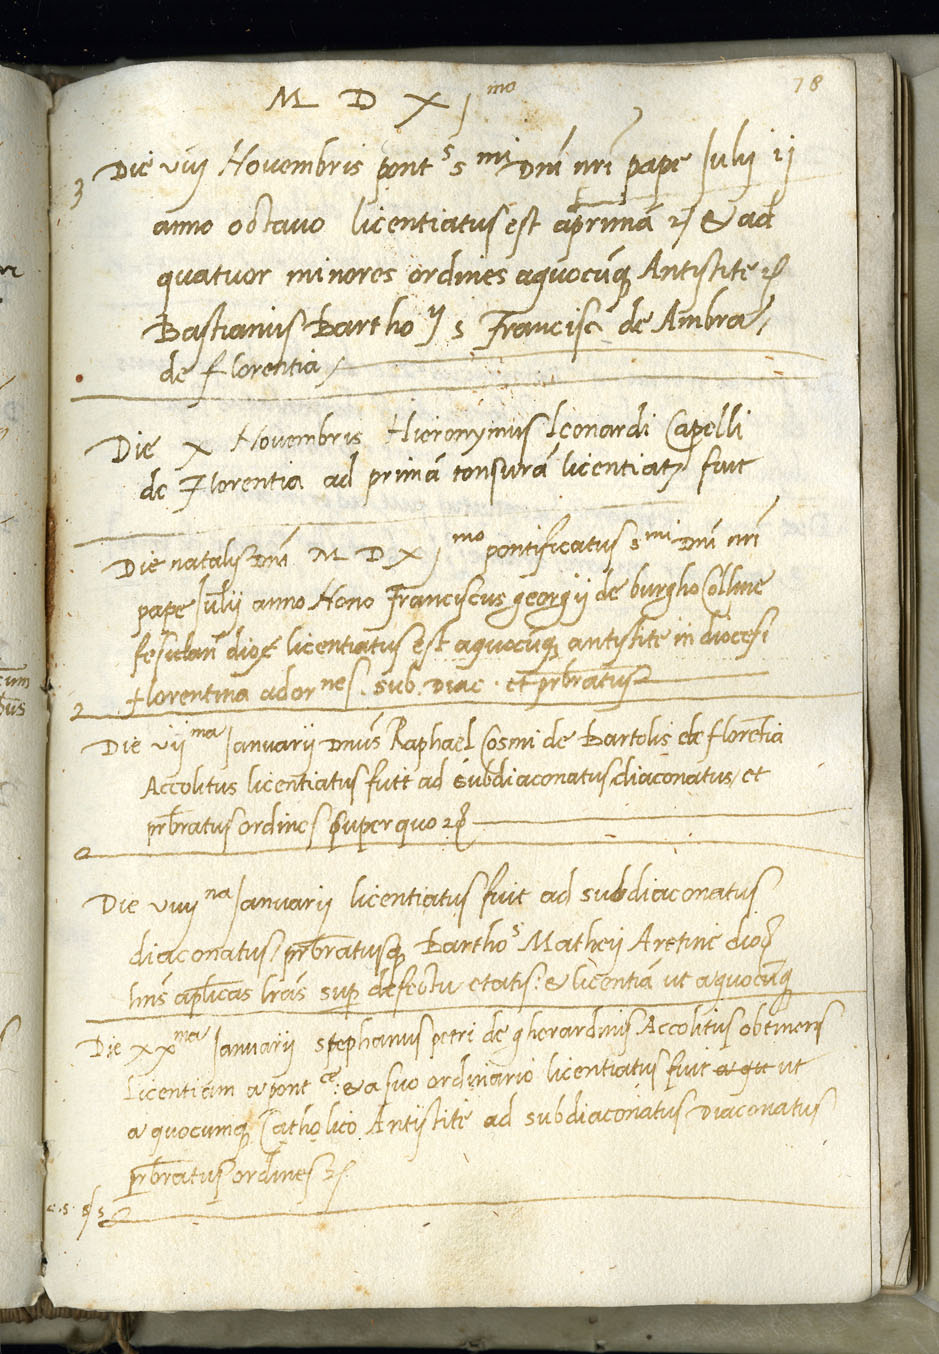 78
M D XJ mo
3 Die viij Novembris pont s s mi Dni nri pape Julij ij
anno octavo licentiatus est ap̄rimā & ad
quatuor minores ordines aquocūq Antistite
Bastianus Bartho ij s Francisci de Ambra /
de florentia /
Die X Novembris Hieronymus leonardi Capelli
de Florentia ad primā tonsurā licentiat9 fuit
Die natalis Dni M D X J mo pontificatus s mi Dni nri
pape Julij anno Nono Franciscus georgij de burgho Colline
fesulan dioc licentiatus est aquocūq antistite in diocesi
florentina ad or nes . sub . Diac . et prbratus
2
Die vij ma Januarij Dnūs Raphael Cosmi de Bartolis de florētia
Accolitus licentiatus fuit ad subdiaconatus / diaconatus / et
prbratus ordines super quo
Die viiij na Januarij licentiatus fuit ad subdiaconatus
diaconatus / prbratusq Bartho s Matheij Aretine dioc
hns aplicas lras sup defectu etatis : & licentiā ut a quocūq
Die xx ma Januarij stephanus petri de gherardinis Accolitus obtinens
Licentiam a pont ce : & a suo ordinario licentiatus fuit a qu ut
a quocumq Catholico Antistite ad subdiaconatus Diaconatus
prbratus ordines